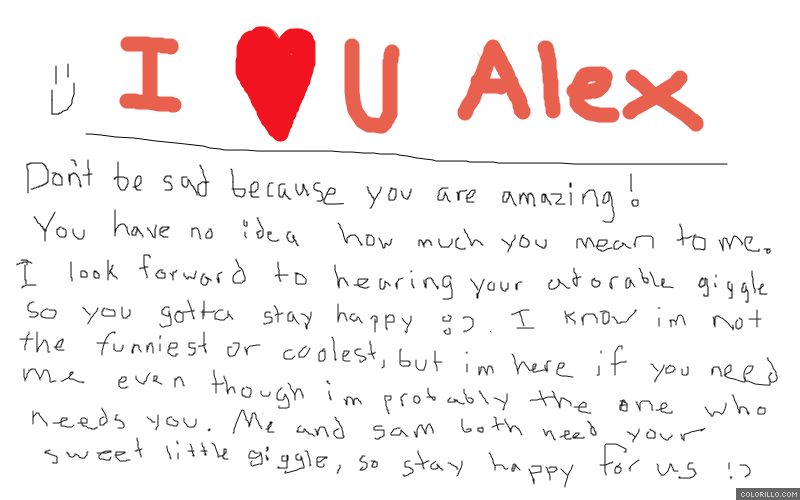 I ♥ U Alex
Don't be sad because you are amazing!
You have no idea how much you mean to me.
I look forward to hearing your adorable giggle
so you gotta stay happy :). I know im not
the funniest or coolest, but im here if you need
me even though im probably the one who
needs you. Me and sam both need your
sweet little giggle, so stay happy for us :)
COLORILLO.COM